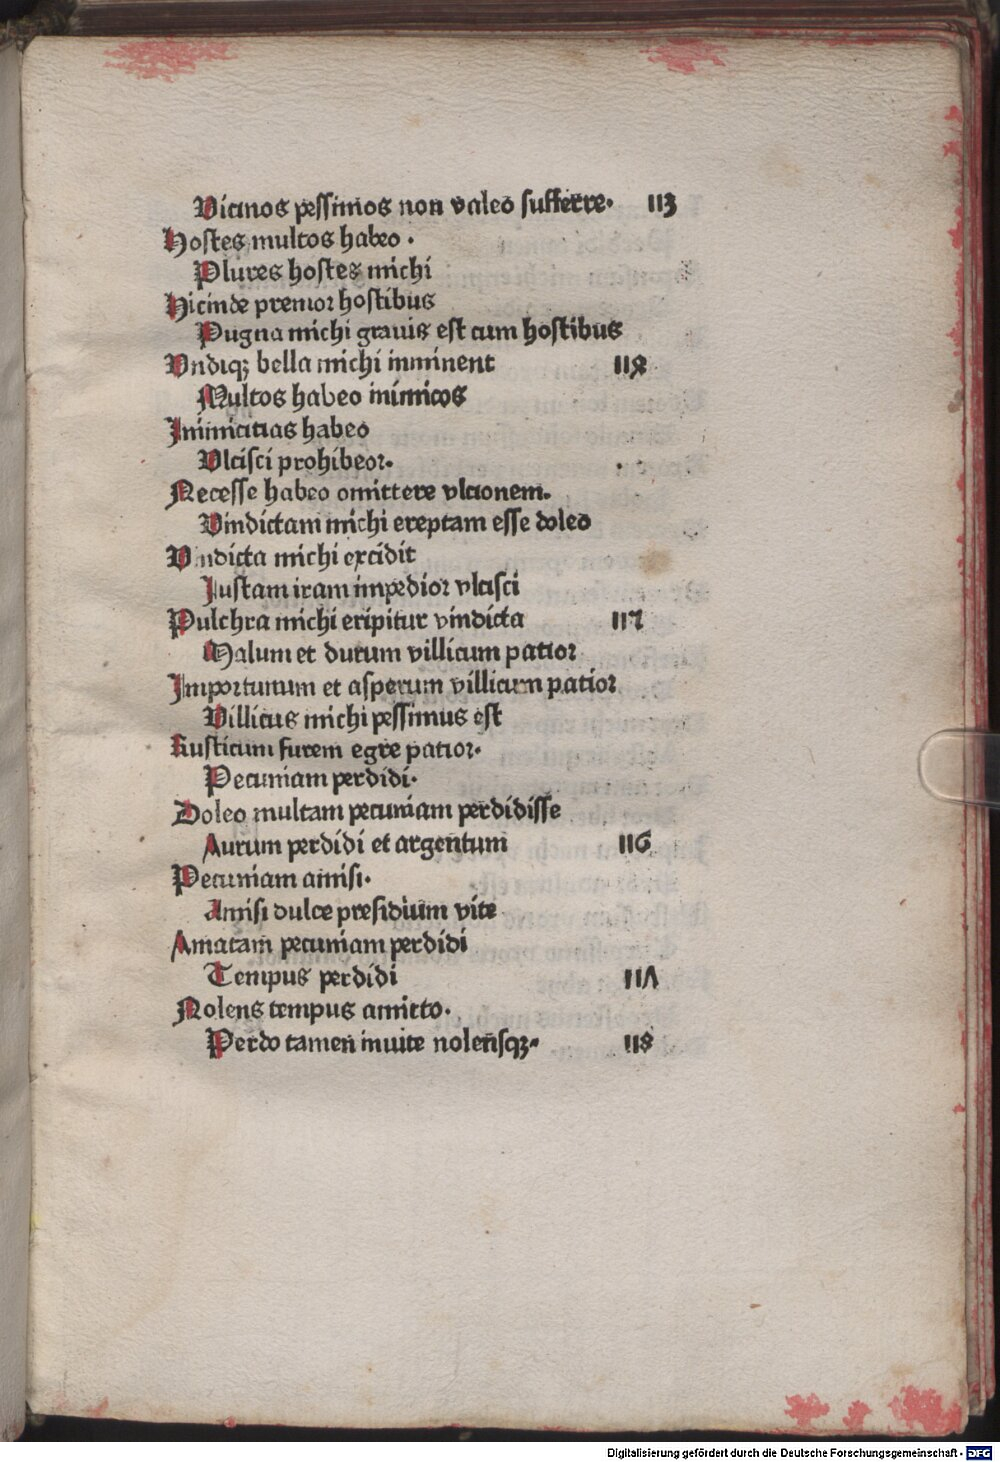 Vicinos pessimos non valeo sufferre. 113
Hostes multos habeo .
Plures hostes michi
Hicinde premor hostibus
Pugna michi grauis est cum hostibus
Vndiqꝫ bella michi imminent 118
Multos habeo inimicos
Inimicitias habeo
Vlcisci prohibeor.
Necesse habeo omittere vlcionem.
Vindictam michi ereptam esse doleo
Vindicta michi excidit
Iustam iram impedior vlcisci
Pulchra michi eripitur vindicta 117
Malum et durum villicum patior
Importunum et asperum villicum patior
Villicus michi pessimus est
Rusticum furem egre patior.
Pecuniam perdidi.
Doleo multam pecuniam perdidisse
Aurum perdidi et argentum 116
Pecuniam amisi.
Amisi dulce presidium vite
Amatam pecuniam perdidi
Tempus perdidi 11Λ
Nolens tempus amitto.
Perdo tamen inuite noleñsqꝫ 118
Digitalisierung gefördert durch die Deutsche Forschungsgemeinschaft - DFG